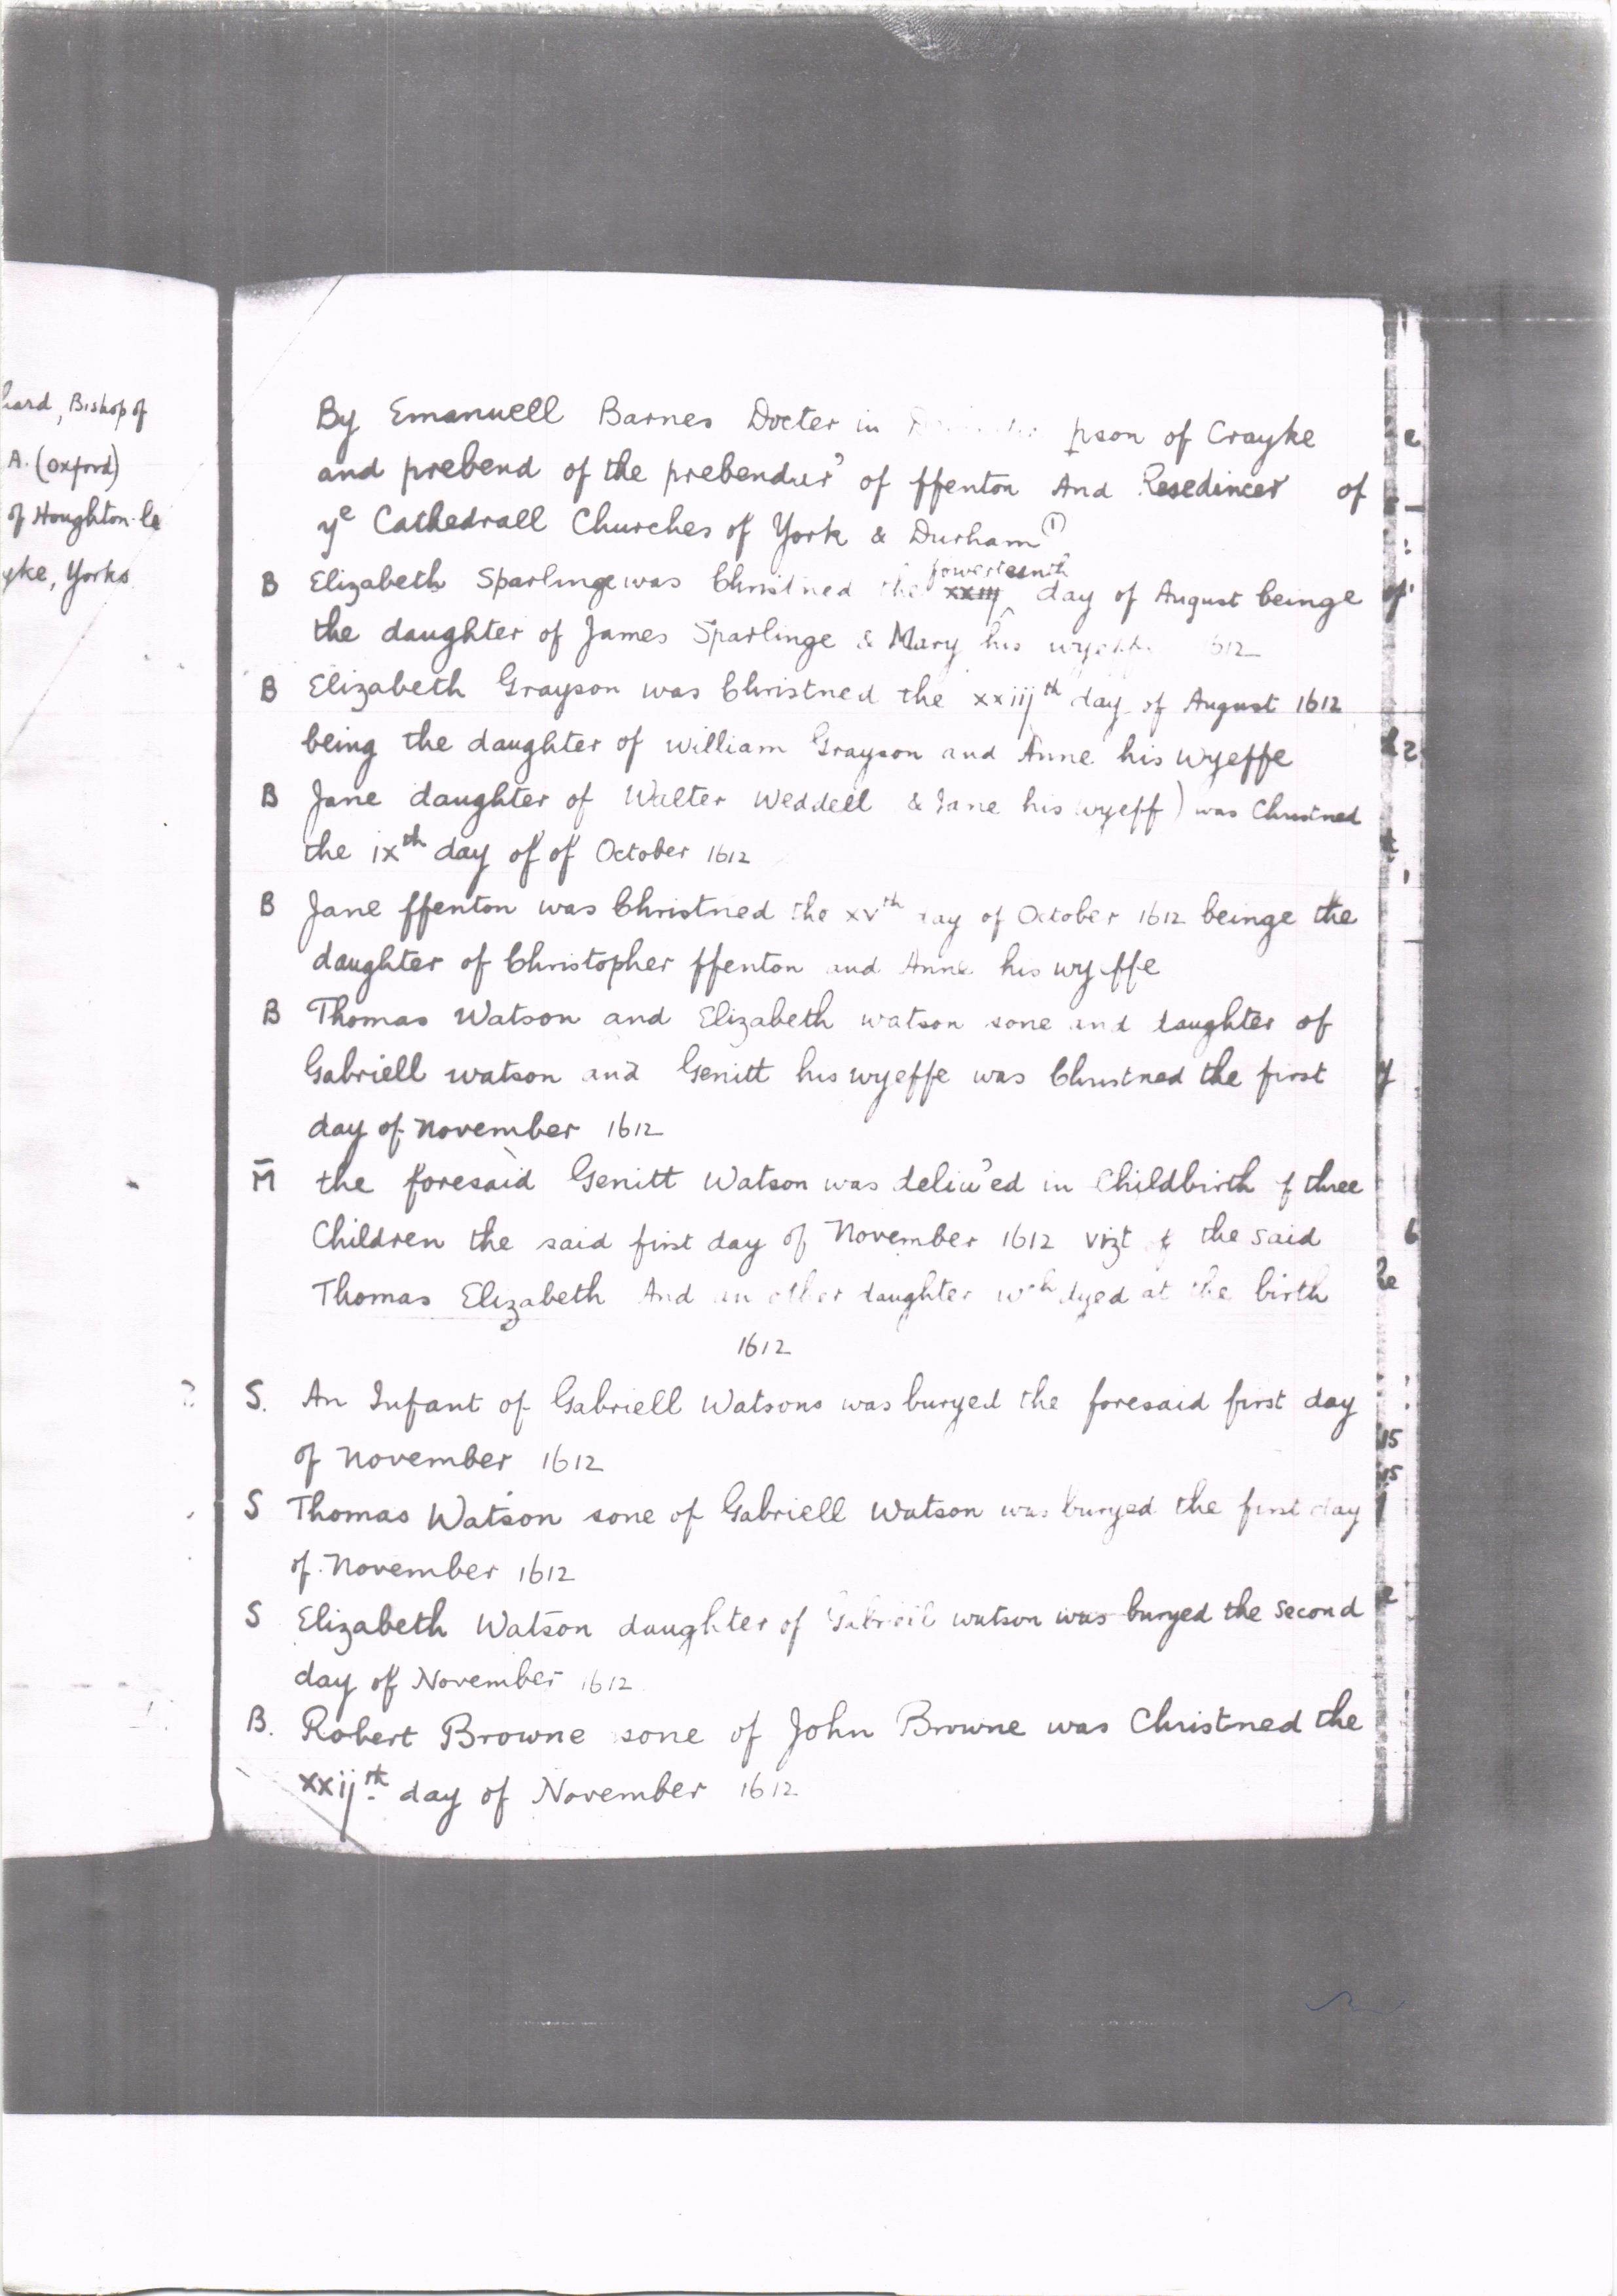 hard, Bishop of
A. (Oxford)
of Houghton-le
yke, Yorks.
By Emanuell Barnes Docter in pson of Crayke
and prebend of the prebendur' of ffenton And Resedincer of
yᵉ Cathedrall Churches of York & Durham ①
fowerteenth
B Elizabeth Sparlinge was Christned the ~~xxiij~~ ^ day of August beinge
the daughter of James Sparlinge & Mary his wyeffe 1612
B Elizabeth Grayson was Christned the xxiijᵗʰ day of August 1612
being the daughter of William Grayson and Anne his wyeffe
B Jane daughter of Walter Weddell & Jane his wyeff) was Christned
the ixᵗʰ day of of October 1612
B Jane ffenton was Christned the xvᵗʰ day of October 1612 beinge the
daughter of Christopher ffenton and Anne his wyeffe
B Thomas Watson and Elizabeth watson sone and daughter of
Gabriell watson and Genitt his wyeffe was Christned the first
day of November 1612
M̄ the foresaid Genitt Watson was deliu'ed in Childbirth of three
Children the said first day of November 1612 vizt of the said
Thomas Elizabeth And an other daughter wᶜʰ dyed at the birth
1612
S. An Infant of Gabriell Watsons was buryed the foresaid first day
of November 1612
S Thomas Watson sone of Gabriell Watson was buryed the first day
of November 1612
S Elizabeth Watson daughter of Gabriell watson was buryed the second
day of November 1612
B. Robert Browne sone of John Browne was Christned the
xxijᵗʰ day of November 1612